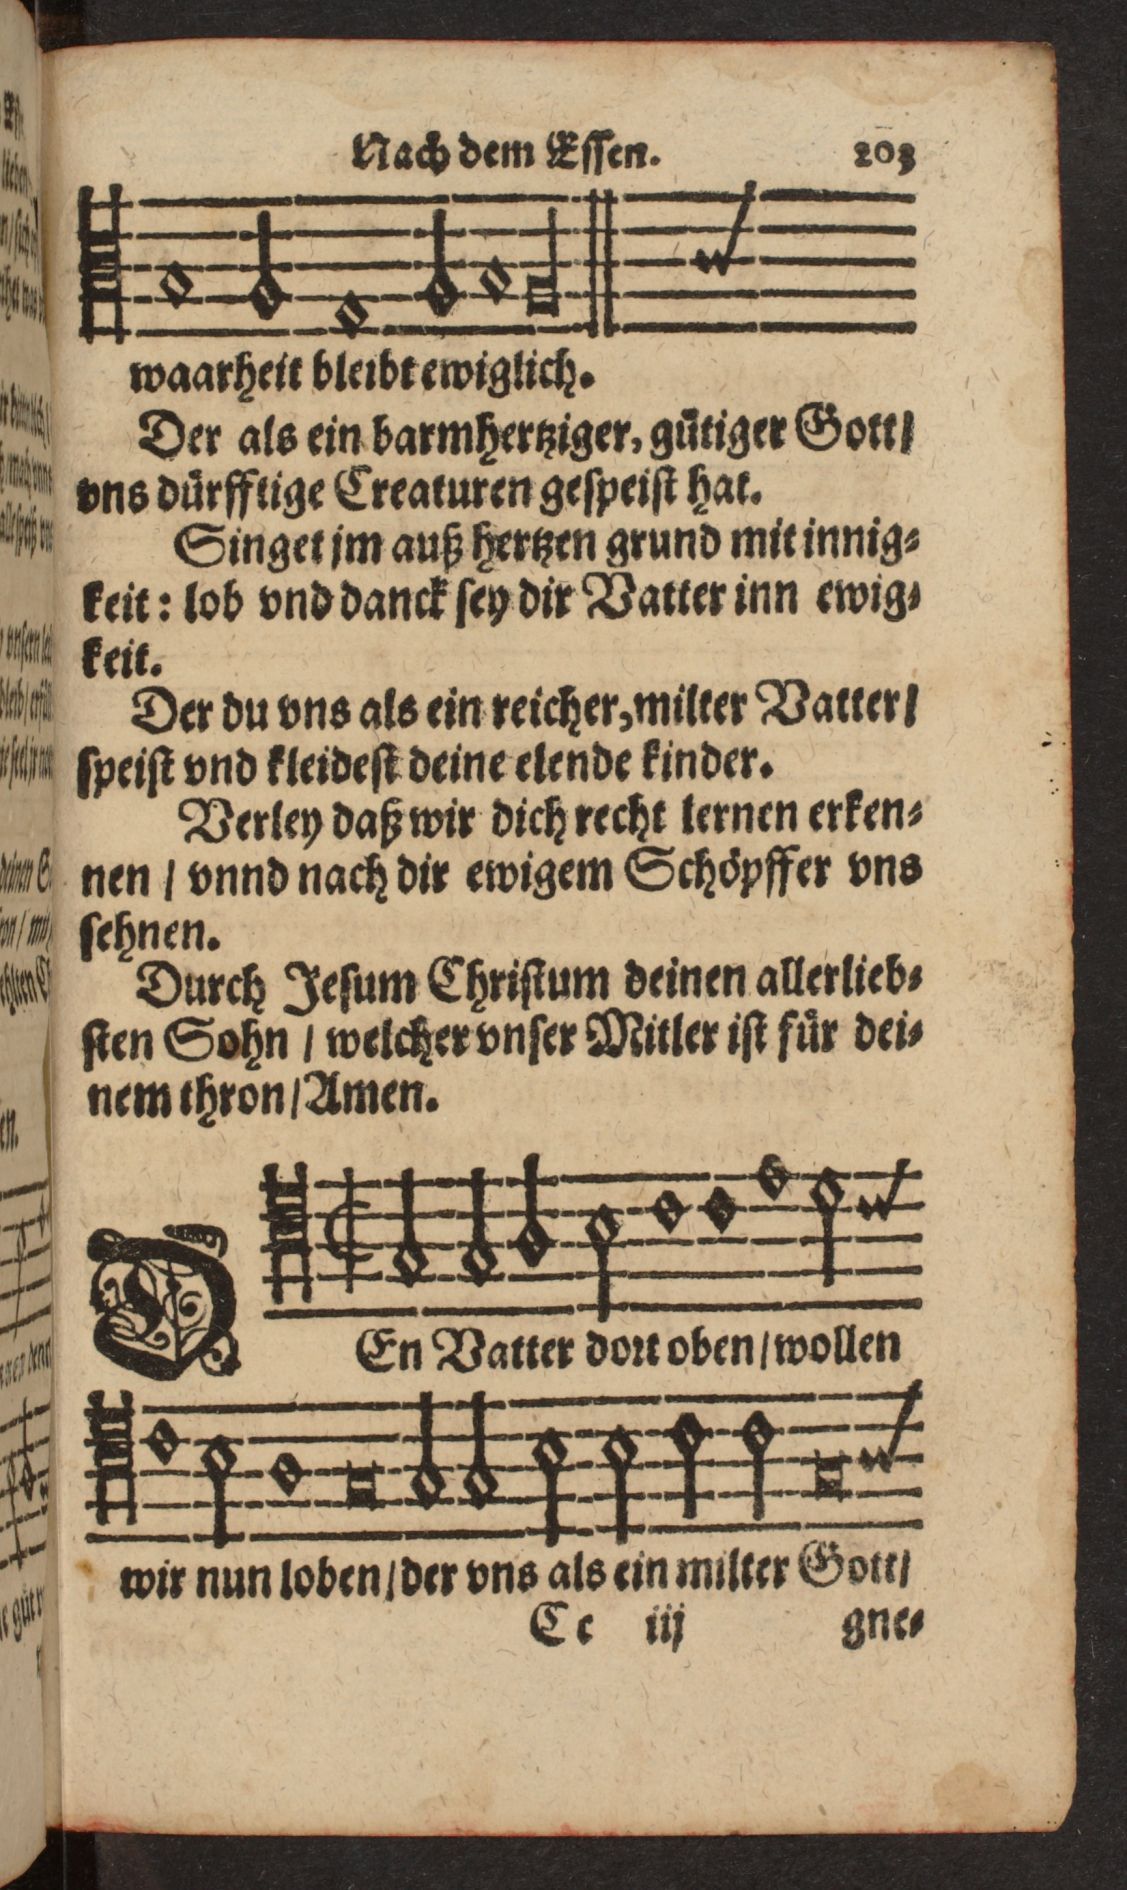 Nach dem Essen. 203
waarheit bleibt ewiglich.
Der als ein barmhertziger, gütiger Gott/
vns dürfftige Creaturen gespeist hat.
Singet jm auß hertzen grund mit innig⸗
keit: lob vnd danck sey dir Vatter inn ewig⸗
keit.
Der du vns als ein reicher, milter Vatter/
speist vnd kleidest deine elende kinder.
Verley daß wir dich recht lernen erken⸗
nen / vnnd nach dir ewigem Schöpffer vns
sehnen.
Durch Jesum Christum deinen allerlieb⸗
sten Sohn / welcher vnser Mitler ist für dei⸗
nem thron/Amen.
DEn Vatter dort oben/wollen
wir nun loben/der vns als ein milter Gott/
Cc iij gne⸗